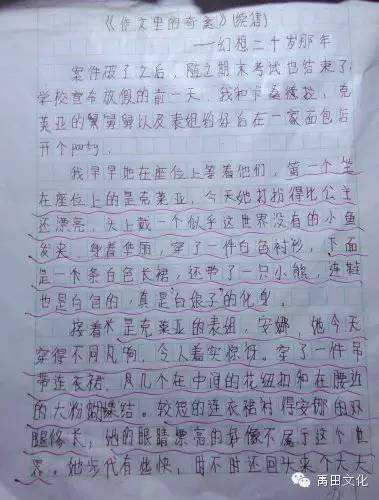 《作文里的奇案》(续集)
——幻想二十岁那年
案件破了之后，随之期末考试也结束了，
学校宣布放假的前一天，我和
莱亚的舅舅以及表姐约好在一家面包店
开个party。
我早早地在座位上等着他们，第一个坐
在座位上的是克莱亚，今天她打扮得比公主
还漂亮，头上戴一个似乎这世界没有的小鱼
发夹，身着华丽，穿了一件白色衬衫，下面
是一条白色长裙，还带了一只小熊，连鞋
也是白色的，真是"白娘子"的化身。
接着是克莱亚的表姐，安娜，她今天
穿得不同凡响，令人着实惊讶。穿了一件吊
带连衣裙，只几个在中间的花纽扣和在腰边
的大粉蝴蝶结。较短的连衣裙衬得安娜的双
腿修长，她的眼睛漂亮的好像不属于这个世
界。她步伐有些快，时不时还回头来个大大
禹田文化